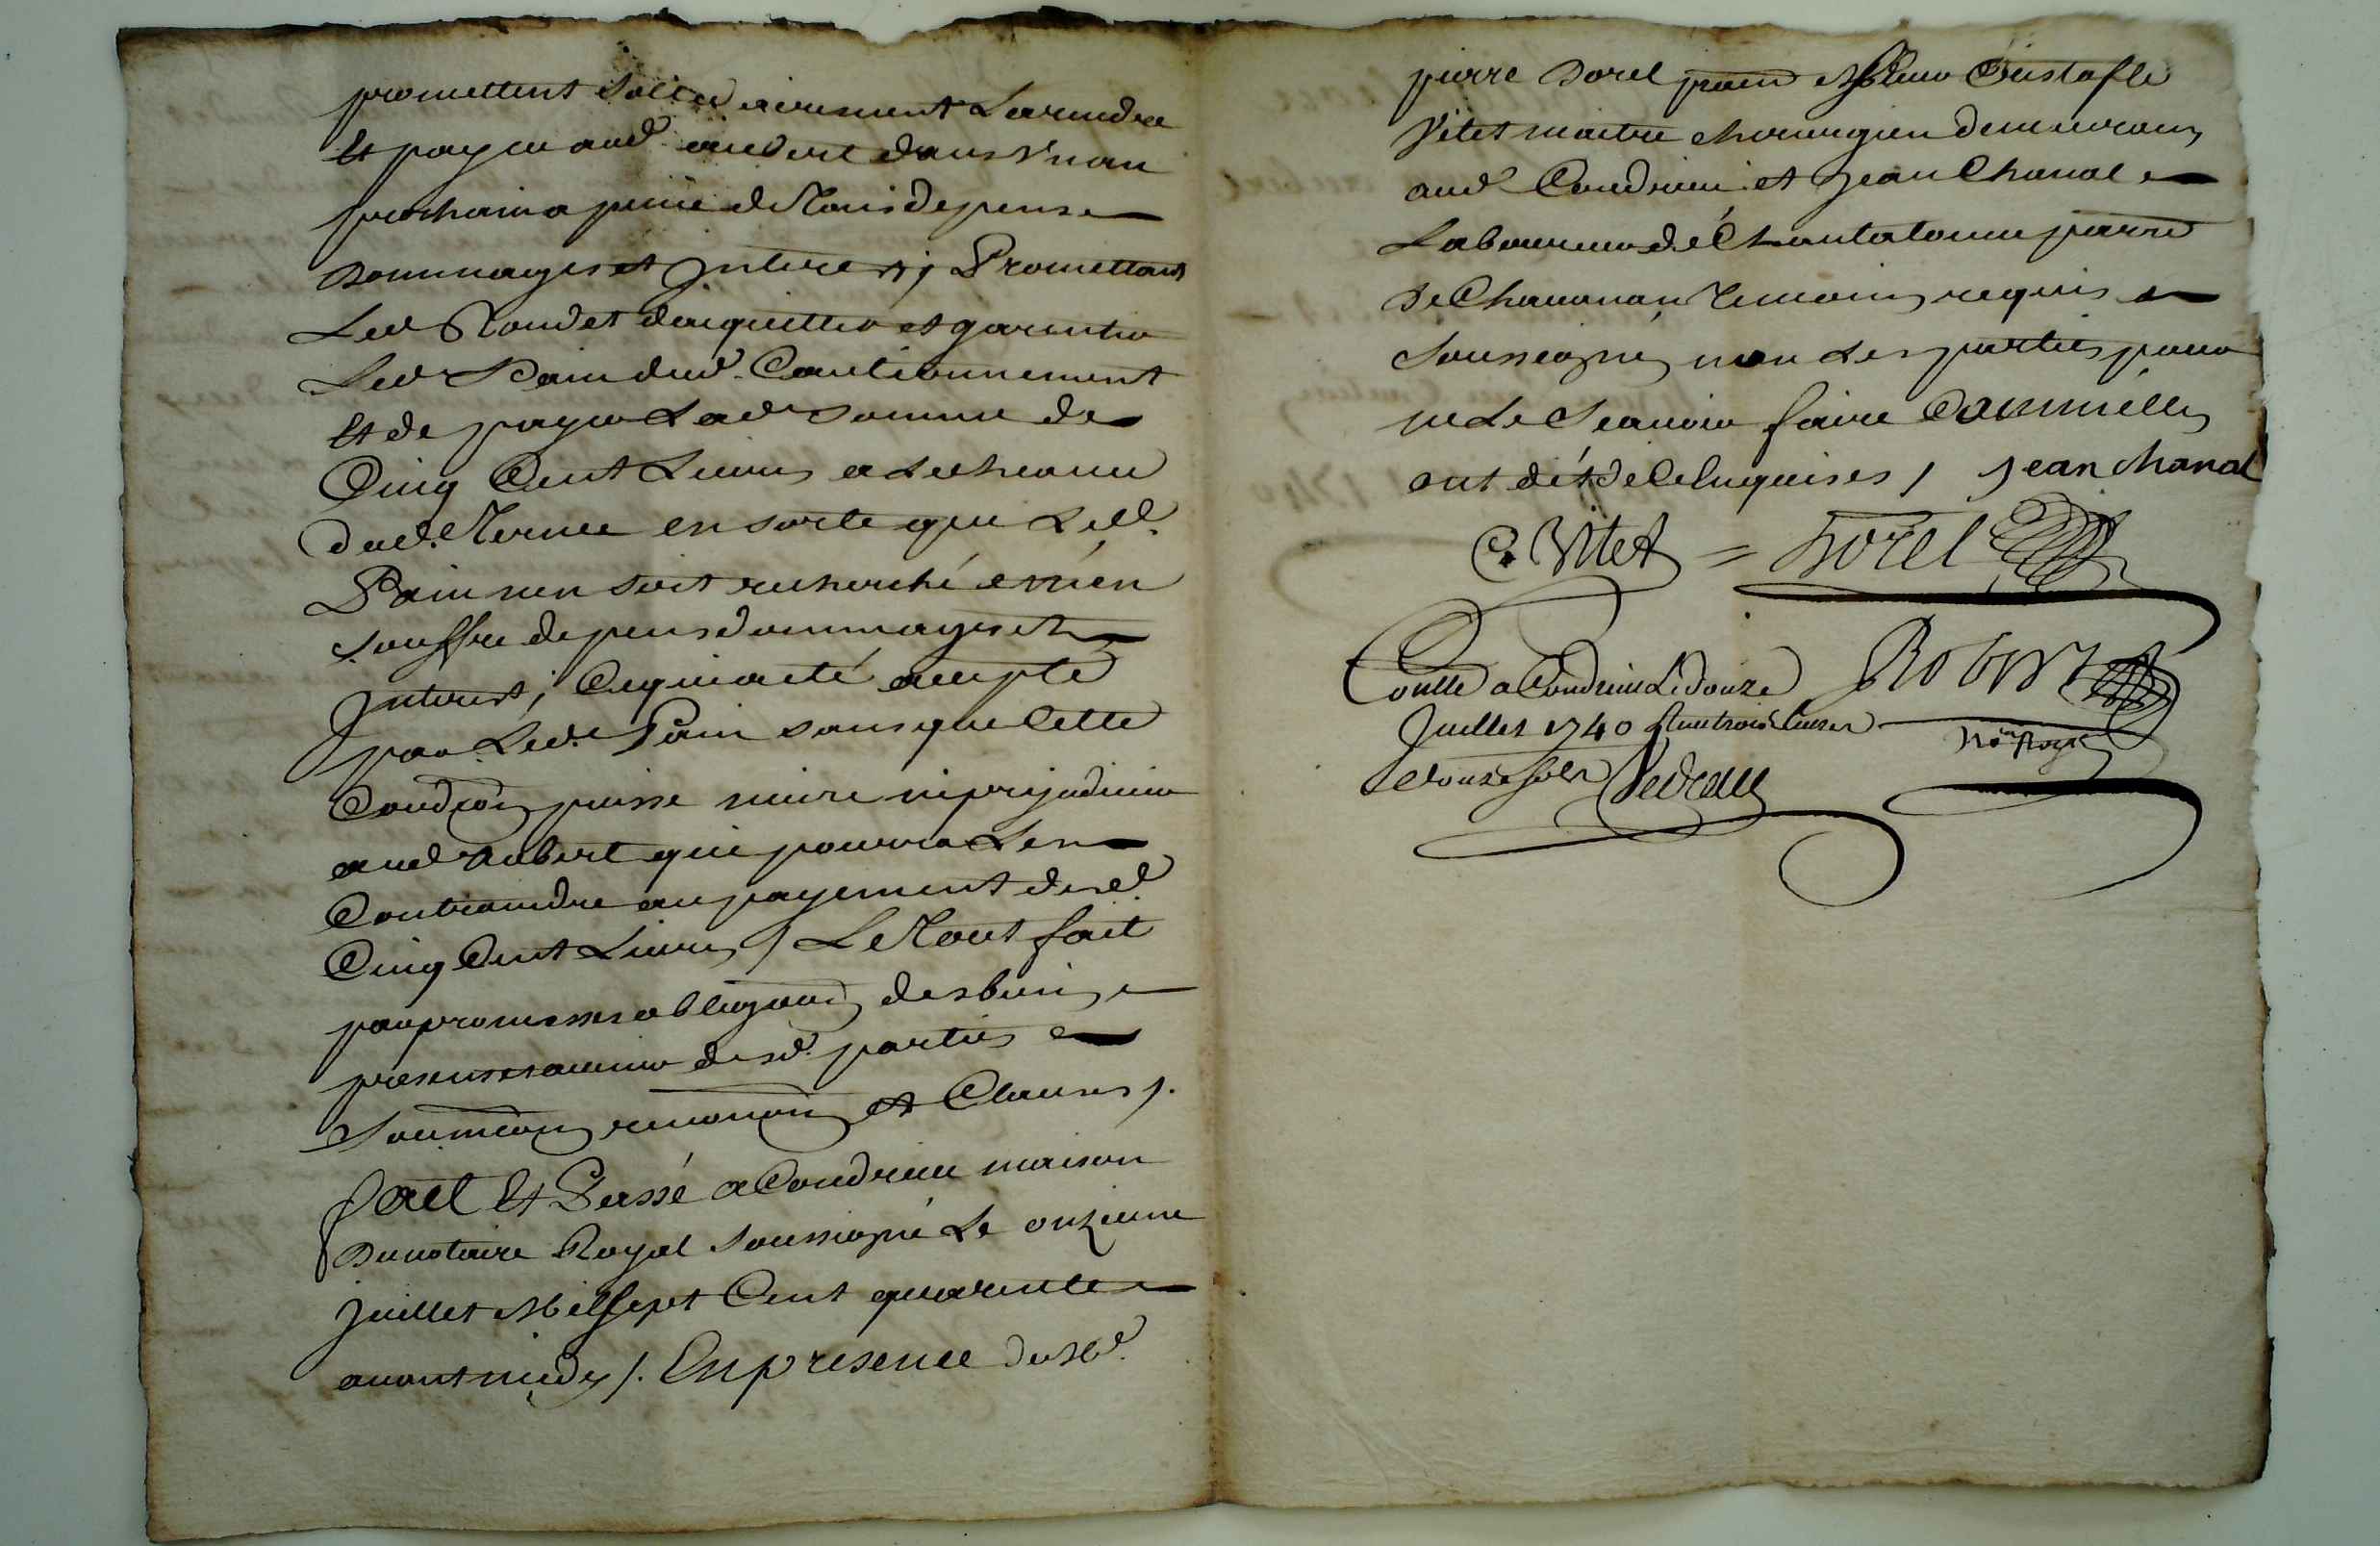 promettent solidairement La rendre
Et payer aud. aubert dans Vn an
prochain a peine de Tous depens
Dommages et Jnterests ; Promettant
Led Rondet d'acquitter et garentir
Led Pain dud. Cautionnement
Et de payer Lad somme de
Cinq Cent Liures a Lecheance
dud. Terme en sorte que Led.
Pain n'en soit recherché e n'i en
souffre depens dommages et
Jnterest ; Ce qui a eté accepté
par Led. Pain sans que Cette
Condition puisse nuire ni prejudicier
aud aubert qui pourra Les
Contraindre au payement desd.
Cinq Cent Liures / Le Tout fait
par promesses obligaons des biens
presens et auenir desd. parties
Soumions renonons et Clauses /.
fait Et Passé a Condrieu maison
Du notaire Royal soussigné Le onzieme
Juillet Mil sept Cent quarente
auant midy /. En presence de Sr.
pierre Dorel Sieur Cristofle
Vitet maitre chirurgien demeurant
aud Condrieu et Jean Chanal
Laboureur de Chantatoine parre
De Chauanay Temoins requis
soussignés non Les parties pour
ne Le Scauoir faire Comm'elles
ont dit de Ce Enquises / Jean chanal
C. Vitet = Dorel
Conllé a Condrieu Le douze Robert
Juillet 1740 Reçu trois liures Nore Royal
douze sols